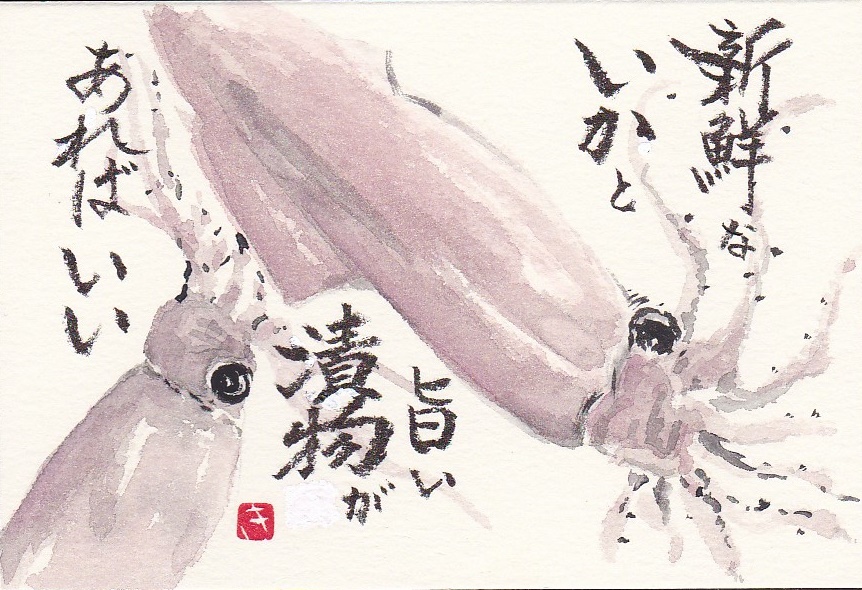 新鮮な
いかと
旨い
漬物が
あれば
いい
き